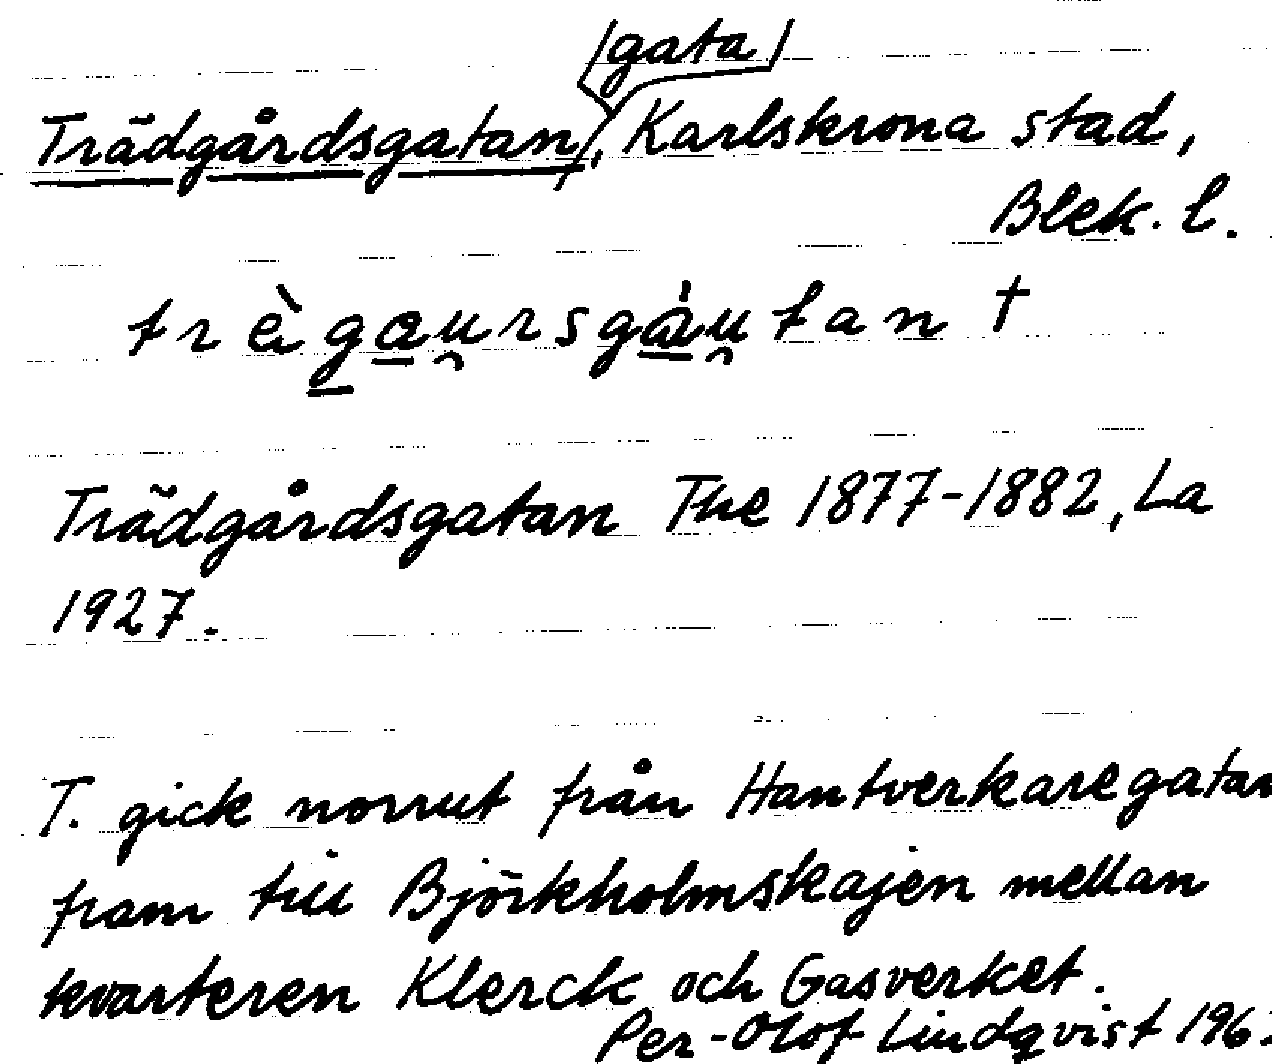 /gata/
Trädgårdsgatan, Karlskrona stad,
Blek. l.
trègau̯rsgàu̯tan †
Trädgårdsgatan The 1877-1882, La
1927.
T. gick norrut från Hantverkaregatan
fram till Björkholmskajen mellan
kvarteren Klerck och Gasverket.
Per-Olof Lindqvist